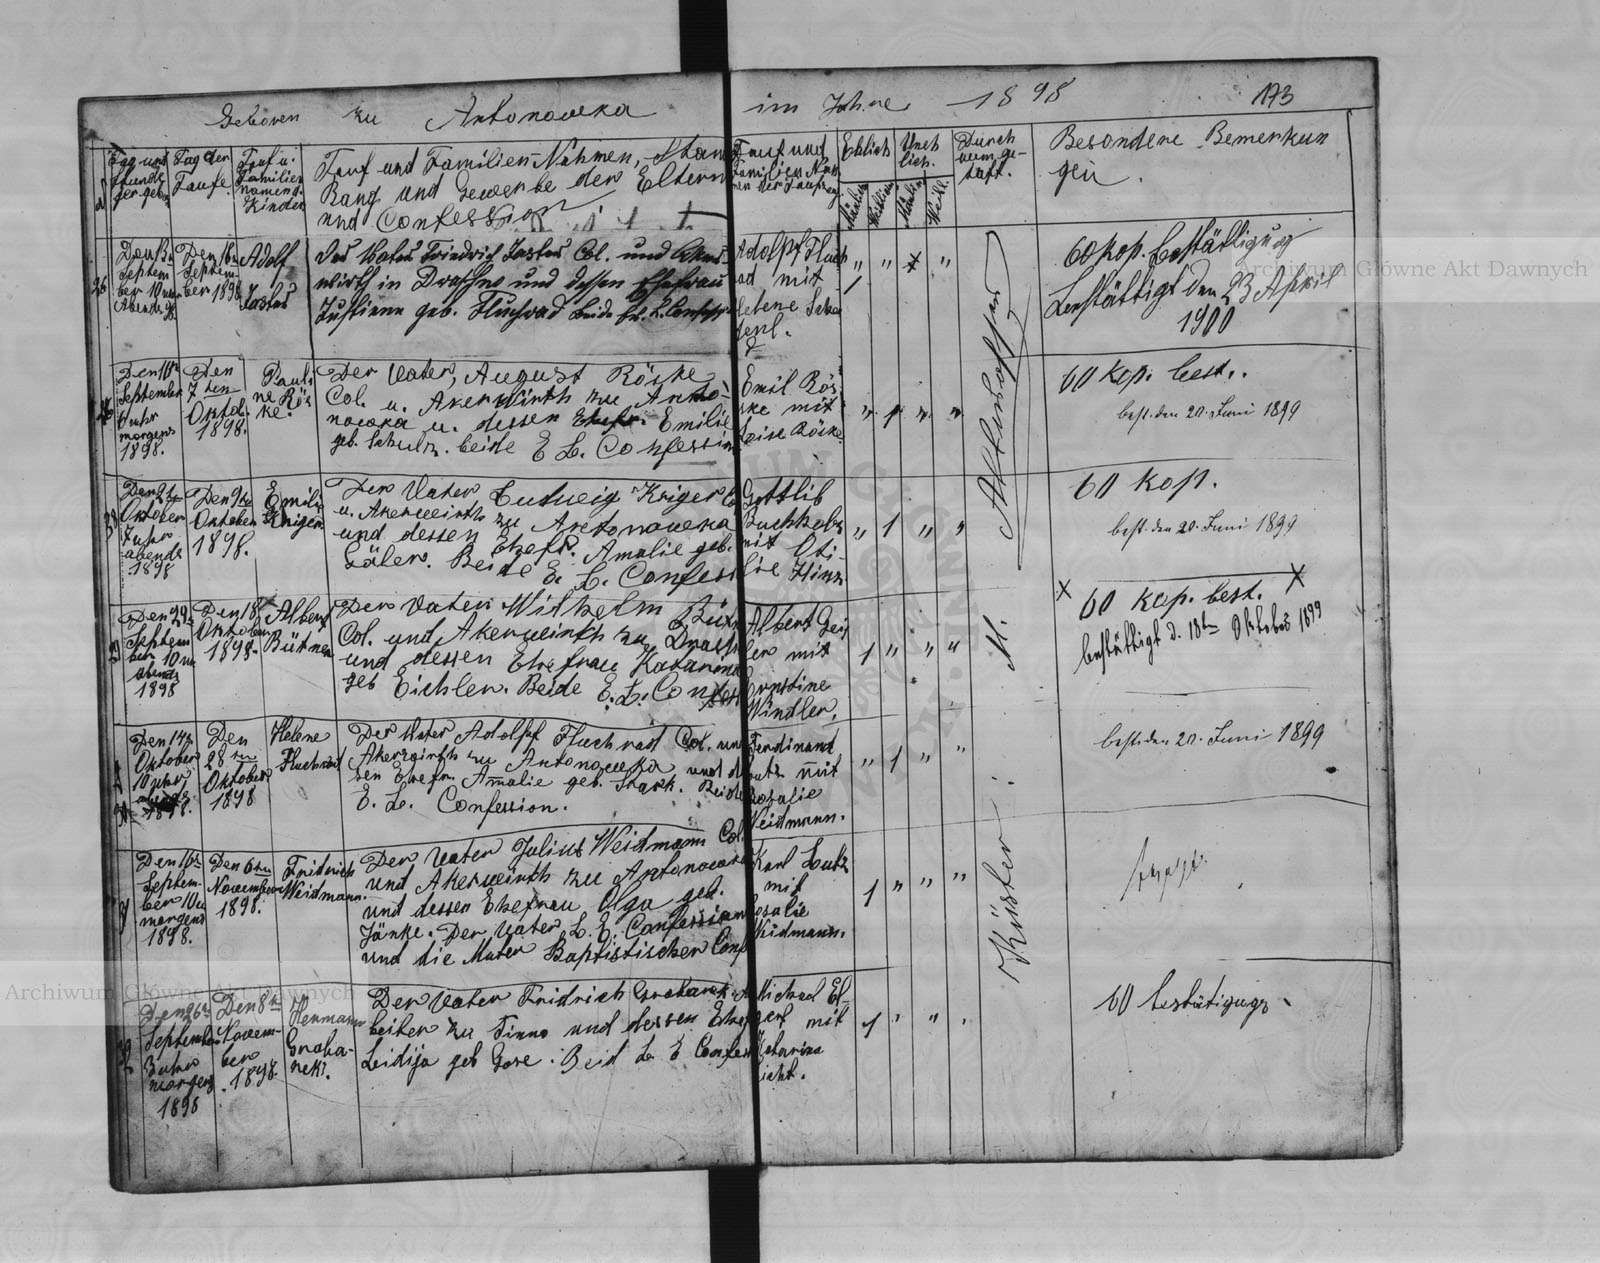 Geboren zu Antonowka im Jahre 1898 173
Tag und
Stunde
der geb.
Tag der
Taufe.
Tauf u.
Familien
namen d.
Kindes
Tauf und Familien-Nahmen, Stan
Rang und Gewerbe der Eltern
und Confession
Tauf und
Familien Nah
men der Taufzeug.
Ehlich
Uneh
lich.
Männlich
Weiblich
Männlich
Weibl.
Durch
wem ge-
tauft.
Besondere Bemerkun
gen.
26
Septem
ber 10 uhr
Abends
Den 18
Septem-
ber 1898
Adolf
Jaster
Der Vater Friedrich Jaster Col. und Aker
wirth in und dessen Ehefrau
Justine geb. Fluchrad beide
Adolph Fluch
rad mit
Helene
" " "
60 kop. bestättigung
bestättigt den 23 April
1900
Den 16
September
6 uhr
morgens
1898.
Den
7ten
Oktob.
1898.
Pauli
ne Rös
ke.
Der Vater, August Röske
Col. u. Akerwirth zu Anto-
nowka u. dessen Ehefr. Emilie
geb. Schulz. beide E L. Confession
Emil Rös-
ke mit
Loise Röske.
" 1 " "
60 kop. best.
best. den 20. Juni 1899
Den 2ten
Oktober
7 uhr
abends
1898
Den 9ten
Oktober
1898.
Emilie
Kriger
Der Vater Ludwig Kriger Co
u. Akerwirth zu Antonowka
und dessen Ehefr. Amalie geb.
Beide E. L. Confess
Gottlib
Buchholz
mit Oti-
lie Hinz
" 1 " "
60 kop.
best. den 20. Juni 1899
29
Den 29
Septem
ber 10 uhr
abends
1898
Den 18
Oktober
1898.
Albert
Bütner
Der Vater Wilhelm Büt
Col. und Akerwirth zu
und dessen Ehefrau Katarina
geb Eichler. Beide E. L. Confess
Albert Geis
ler mit
Ernstine
Windler.
1 " " "
X 60 kop. best. X
bestättigt d. 18ten Oktober 1899
Den 14
Oktober
10 uhr
abends
1898.
Den
28ten
Oktober
1898
Helene
Fluchrad
Der Vater Adolpf Fluchrad Col. und
Akerwirth zu Antonowka und des
sen Ehefr. Amalie geb. Beide
E. L. Confession.
Ferdinand
Lutz mit
Rosalie
Weidmann.
" 1 " "
best. den 20. Juni 1899
31
Den 16
Septem-
ber 10 u
morgens
1898.
Den 6ten
November
1898.
Fridrich
Weidmann.
Der Vater Julius Weidmann Col.
und Akerwirth zu Antonowka
und dessen Ehefrau Olga geb.
Jänke. Der Vater L. E. Confession
und die Muter Baptistischer Conf
Karl Lutz
mit
Rosalie
Weidmann.
1 " " "
32
Den 26
September
3 uhr
morgens
1898
Den 8
Novem-
ber
1898.
Hermann
Graba-
neki.
Der Vater Fridrich Grabaneki. Ar
beiter zu und dessen Ehefr
Leidija geb Gore. Beid L. E Confess
Michael El-
gert mit
Katarina
1 " " "
60 bestätigung
Küster: M. Altenhoffen